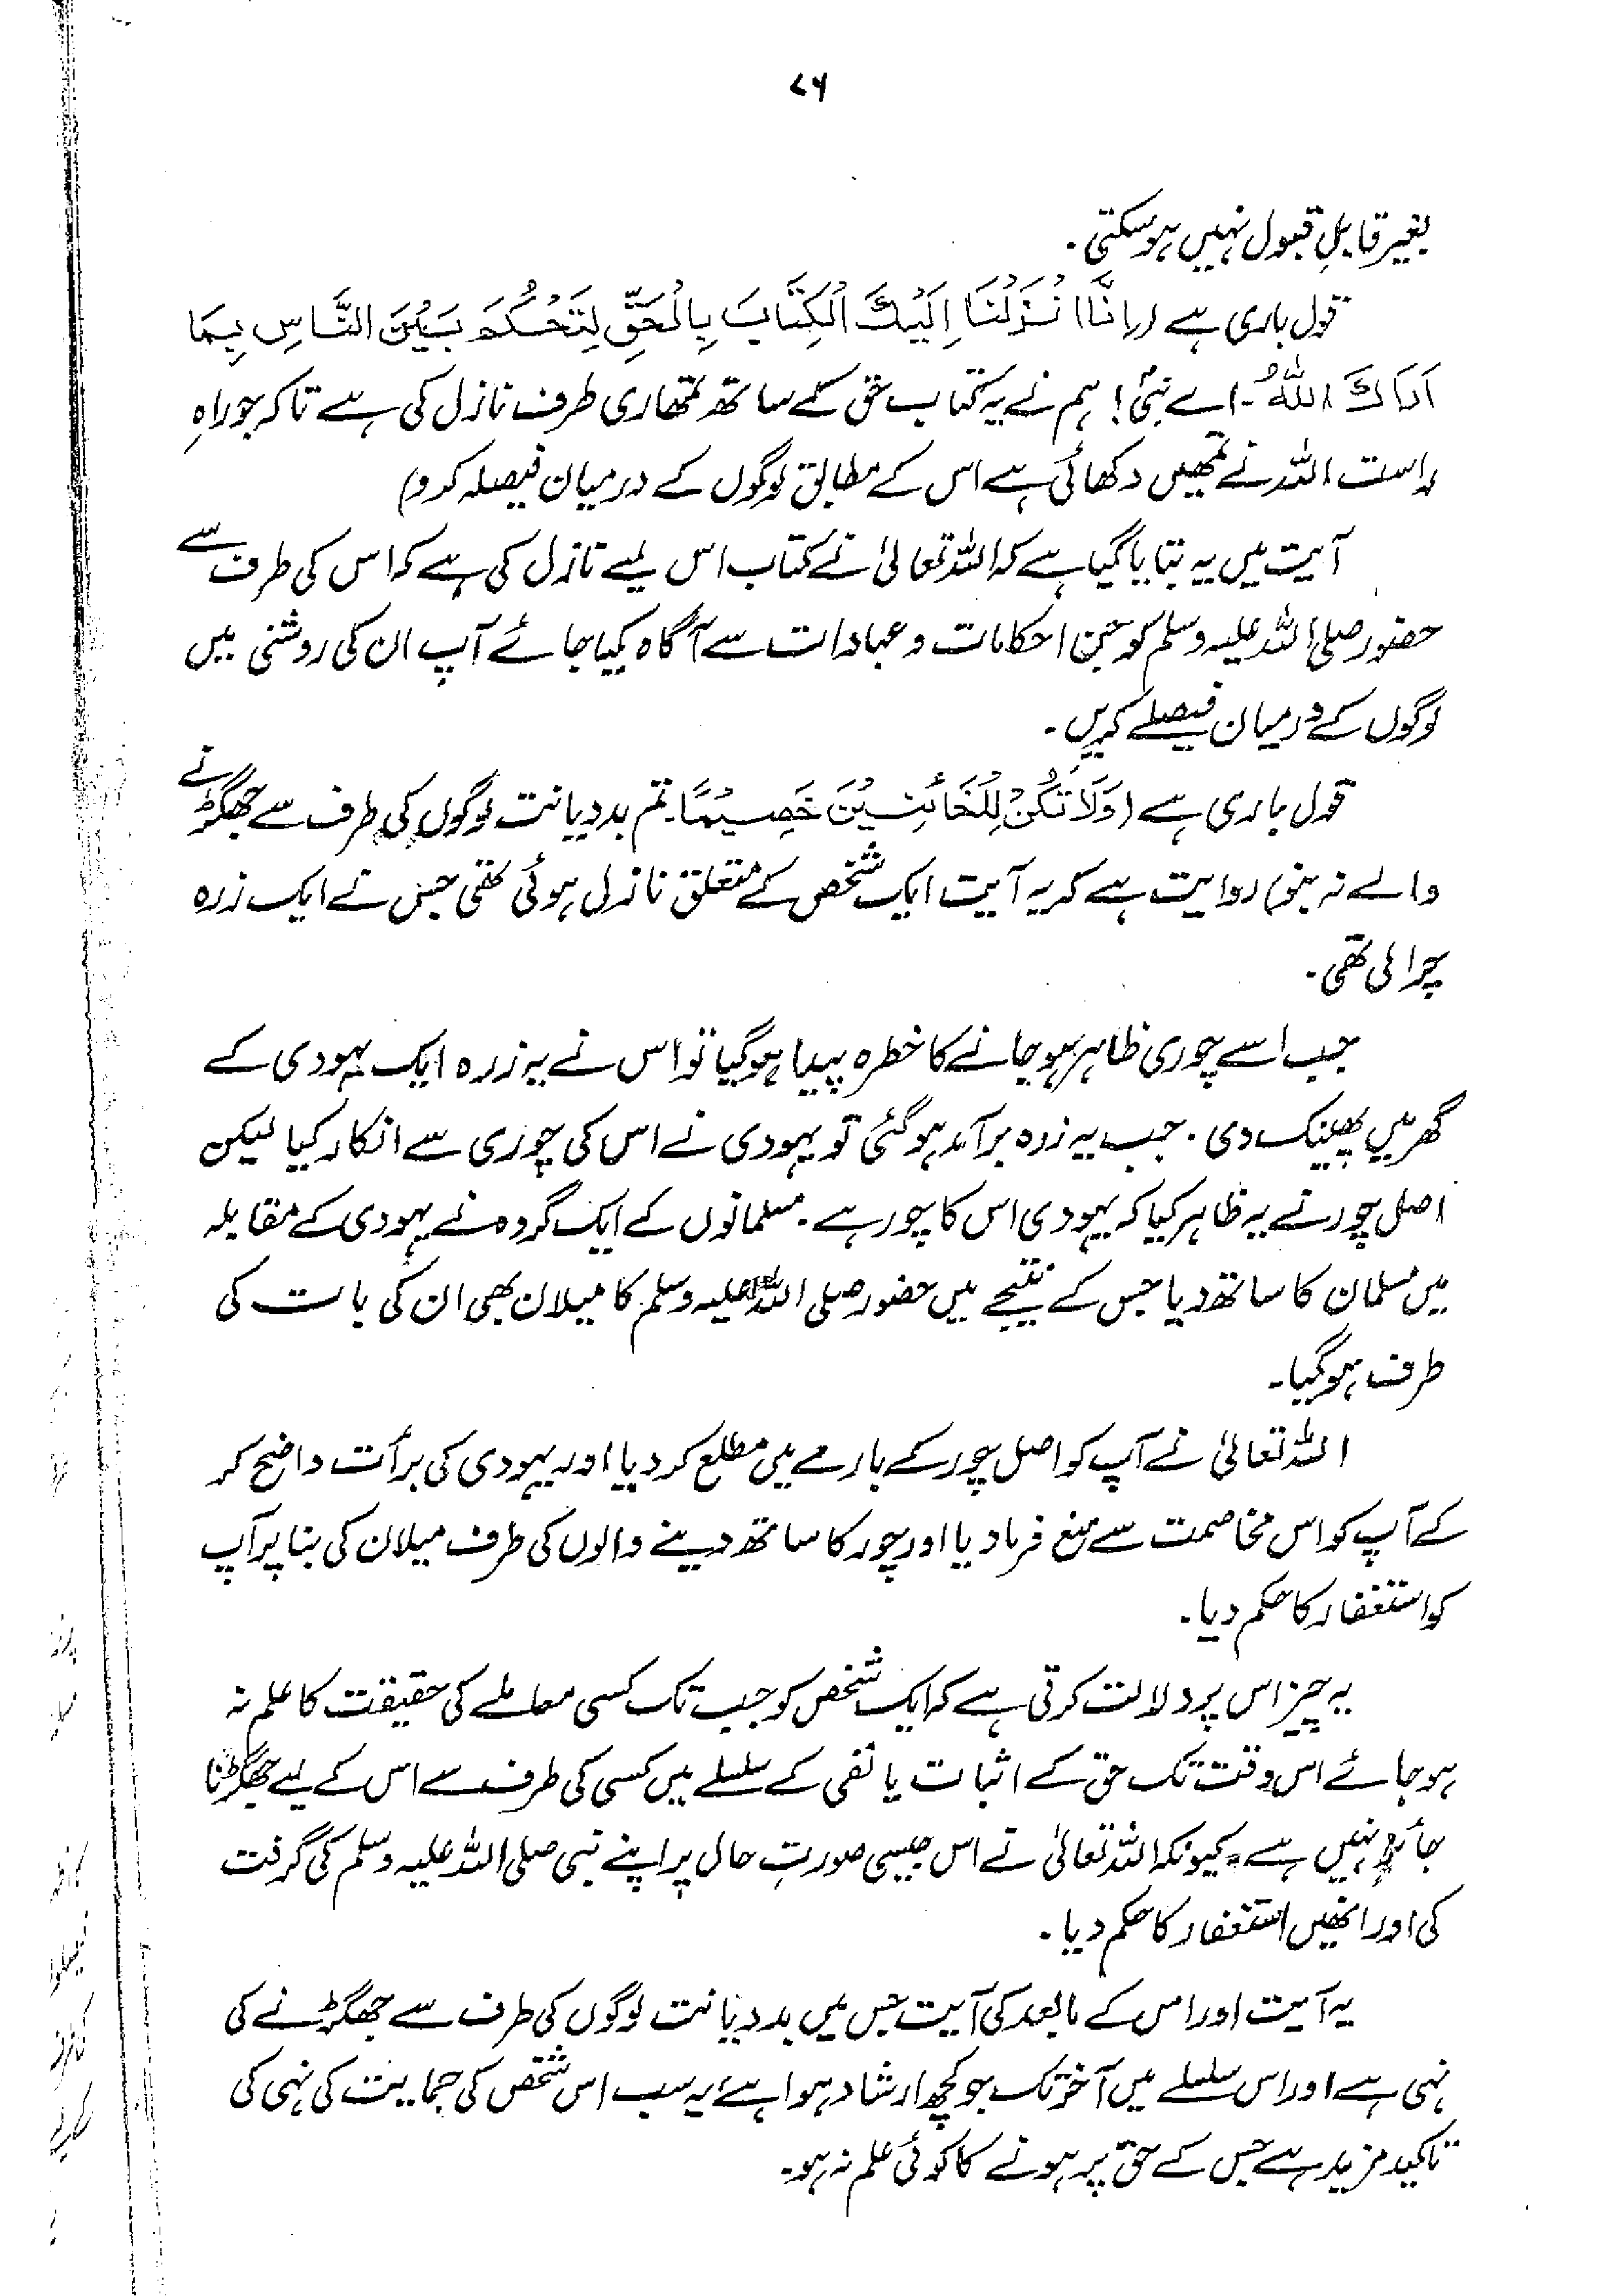 ۷۶
بغیر قابلِ قبول نہیں ہوسکتی۔
قول باری ہے (اِنَّا اَنْزَلْنَا اِلَیْكَ الْكِتَابَ بِالْحَقِّ لِتَحْكُمَ بَیْنَ النَّاسِ بِمَا
اَرَاكَ اللّٰهُ۔ اے نبیؐ! ہم نے یہ کتاب حق کے ساتھ تمھاری طرف نازل کی ہے تاکہ جو راہِ
راست اللہ نے تمھیں دکھائی ہے اس کے مطابق لوگوں کے درمیان فیصلہ کرو)
آیت میں یہ بتایا گیا ہے کہ اللہ تعالیٰ نے کتاب اس لیے نازل کی ہے کہ اس کی طرف سے
حضور صلی اللہ علیہ وسلم کو جن احکامات و عبادات سے آگاہ کیا جائے آپ ان کی روشنی میں
لوگوں کے درمیان فیصلے کریں۔
قول باری ہے (وَلَا تَكُنْ لِلْخَائِنِیْنَ خَصِیْمًا۔ تم بددیانت لوگوں کی طرف سے جھگڑنے
والے نہ بنو) روایت ہے کہ یہ آیت ایک شخص کے متعلق نازل ہوئی تھی جس نے ایک زرہ
چرا لی تھی۔
جب اسے چوری ظاہر ہو جانے کا خطرہ پیدا ہوگیا تو اس نے یہ زرہ ایک یہودی کے
گھر میں پھینک دی۔ جب یہ زرہ برآمد ہوگئی تو یہودی نے اس کی چوری سے انکار کیا لیکن
اصل چور نے یہ ظاہر کیا کہ یہودی اس کا چور ہے۔ مسلمانوں کے ایک گروہ نے یہودی کے مقابلہ
میں مسلمان کا ساتھ دیا جس کے نتیجے میں حضور صلی اللہ علیہ وسلم کا میلان بھی ان کی بات کی
طرف ہوگیا۔
اللہ تعالیٰ نے آپ کو اصل چور کے بارے میں مطلع کر دیا اور یہودی کی برأت واضح کر
کے آپ کو اس مخاصمت سے منع فرما دیا اور چور کا ساتھ دینے والوں کی طرف میلان کی بنا پر آپ
کو استغفار کا حکم دیا۔
یہ چیز اس پر دلالت کرتی ہے کہ ایک شخص کو جب تک کسی معاملے کی حقیقت کا علم نہ
ہو جائے اس وقت تک حق کے اثبات یا نفی کے سلسلے میں کسی کی طرف سے اس کے لیے جھگڑنا
جائز نہیں ہے۔ کیونکہ اللہ تعالیٰ نے اس جیسی صورتِ حال پر اپنے نبی صلی اللہ علیہ وسلم کی گرفت
کی اور انھیں استغفار کا حکم دیا۔
یہ آیت اور اس کے مابعد کی آیت جس میں بددیانت لوگوں کی طرف سے جھگڑنے کی
نہی ہے اور اس سلسلے میں آخر تک جو کچھ ارشاد ہوا ہے، یہ سب اس شخص کی حمایت کی نہی کی
تاکید مزید ہے جس کے حق پر ہونے کا کوئی علم نہ ہو۔